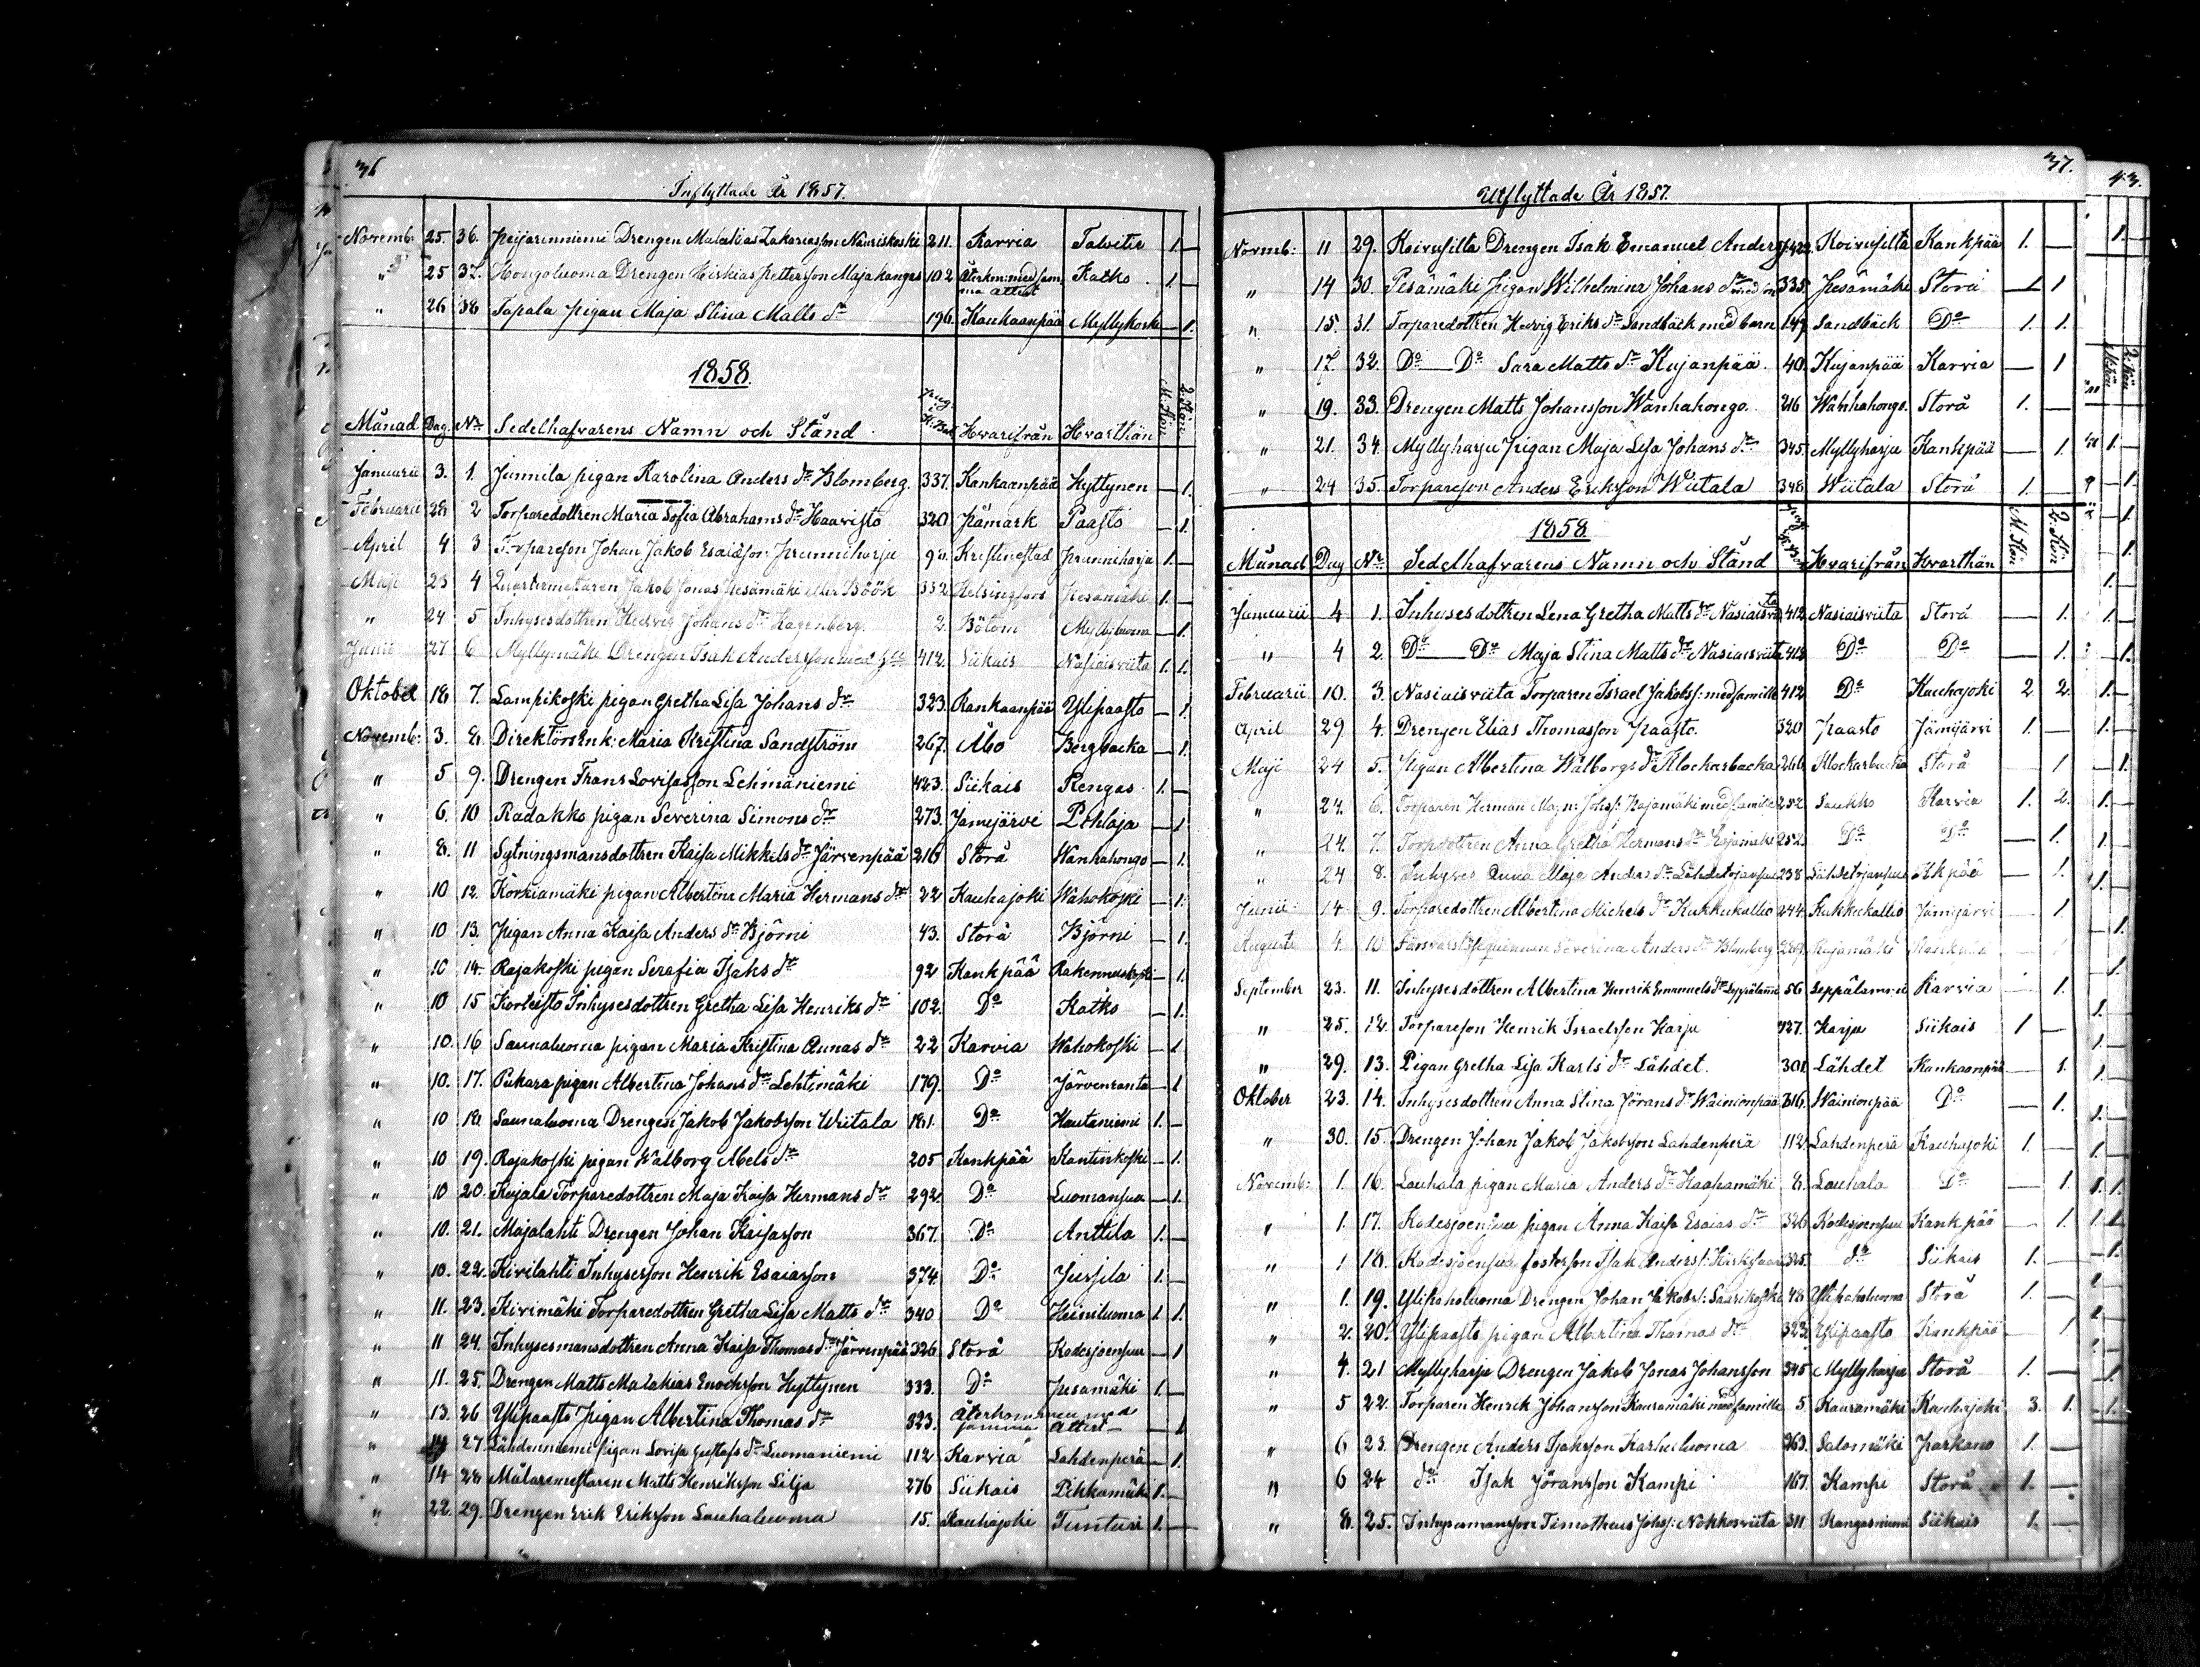 36
Inflyttade År 1857.
Novemb: 25. 36. Peijarinniemi Drengen Malakias Zakariasson Nauriskoski 211. Karvia Talvitie 1. —
" 25 37. Hongoluoma Drengen Hiskias Pettersson Majakangas 102 Återkom: med samma attest Katko 1. —
" 26 38 Tapala pigan Maja Stina Matts dr 196. Kankaanpää Myllykoski — 1.
1858.
Månad Dag. No Sedelhafvarens Namn och Stånd Hvarifrån Hvarthän M. Kön Q. Kön
Januarii 3. 1. Junnila pigan Karolina Anders dr Blomberg. 337. Kankaanpää Hyttynen — 1.
Februarii 28 2 Torparedottren Maria Sofia Abrahams dr Haavisto 320 Påmark Paasto — 1.
April 4 3 Torpareson Johan Jakob Esaiasson Prunniharju Kristinestad Prunniharju 1. —
Maji 23 4 Jakob Jonas Pesämäki eller Böök 332 Helsingfors Pesämäki 1. —
" 24 5 Inhysesdottren Hedvig Johans dr Hagenberg. 2. Bötom Myllyluoma — 1.
Junii 27 6 Myllymäki Drengen Isak Andersson med 412. Siikais Nasiaisviita 1. 1.
Oktober 18 7. Lampikoski pigan Gretha Lisa Johans dr 323. Kankaanpää Ylipaasto — 1.
Novemb: 3. 8. Direktörs Enk: Maria Kristina Sandström 267. Åbo Bergbacka — 1.
" 5 9. Drengen Frans Lovisasson Lehmäniemi 423. Siikais Rengas 1. —
" 6. 10 Radakko pigan Severina Simons dr 273. Jämijärvi Pohlaja — 1
" 8. 11 Sytningsmansdottren Kaisa Mikkels dr Järvenpää 216 Storå Wanhahongo — 1.
" 10 12. Körkiamäki pigan Albertina Maria Hermans dr 22 Kauhajoki Wahokoski — 1.
" 10 13. Pigan Anna Kaisa Anders dr Björni 43. Storå Björni — 1.
" 10 14. Rajakoski pigan Serafia Isaks dr 92 Kankpää Rakennuskoski — 1.
" 10 15 Korteisto Inhysesdottren Gretha Lisa Henriks dr 102. Do Katko — 1.
" 10. 16 Saunaluoma pigan Maria Kristina Aunas dr 22 Karvia Wahokoski — 1
" 10. 17. Pukara pigan Albertina Johans dr Lehtimäki 179. Do Järvenranta — 1
" 10 18 Saunaluoma Drengen Jakob Jakobsson Wiitala 181. Do Hautaniemi 1. —
" 10 19. Rajakoski pigan Walborg Abels dr 205 Kankpää Kantinkoski — 1.
" 10 20. Kujala Torparedottren Maja Kaisa Hermans dr 292 Do Luomansuu — 1.
" 10. 21. Majalahti Drengen Johan Kaisasson 367. Do Anttila 1. —
" 10. 22. Kivilahti Inhyseson Henrik Esaiasson 374. Do Jussila 1. —
" 11. 23. Kivimäki Torparedottren Gretha Lisa Matts dr 340 Do Heiniluoma 1. 1.
" 11 24. Inhysesmansdottren Anna Kaisa Thomas dr Järvenpää 326 Storå Kodesjoensuu — 1
" 11. 25. Drengen Matts Malakias Enocksson Hyttynen 333. Do Pesämäki 1. —
" 13. 26 Ylipaasto Pigan Albertina Thomas dr 323. Återkommen med samma Attest — 1
" 27 Lähdenniemi pigan Lovisa Gustafs dr Luomaniemi 112 Karvia Lahdenperä — 1.
" 14 28 Målaremästaren Matts Henriksson Silja 276 Siikais Pihkamäki 1. —
" 22. 29. Drengen Erik Eriksson Lauhaluoma 15. Kauhajoki Tunturi 1. —
37.
Utflyttade År 1857.
Novemb: 11 29. Koivusilta Drengen Isak Emanuel Anders Koivusilta Kankpää 1. —
" 14 30. Pesämäki Pigan Wilhelmina Johans dr 335. Pesämäki Storå 1 1
" 15. 31. Torparedottren Hedvig Eriks dr Sandbäck med barn 149 Sandbäck Do 1. 1.
" 17. 32. Do — Do Sara Matts dr Kujanpää. 40. Kujanpää Karvia — 1
" 19. 33. Drengen Matts Johansson Wanhahongo. 216 Wanhahongo. Storå 1. —
" 21. 34. Myllyharju Pigan Maja Lisa Johans dr 345. Myllyharju Kankpää — 1.
" 24 35. Torpareson Anders Eriksson Wiitala 348. Wiitala Storå 1. —
1858.
Månad Dag No Sedelhafvarens Namn och Stånd Hvarifrån Hvarthän M. Kön Q. Kön
Januarii 4 1. Inhysesdottren Lena Gretha Matts dr Nasiaisvita 412. Nasiaisviita Storå — 1.
" 4 2. Do — Do Maja Stina Matts dr Nasiaisviita 412 Do Do — 1.
Februarii 10. 3. Nasiaisviita Torparen Israel Jakobss: med famille 412 Do Kauhajoki 2 2.
April 29 4. Drengen Elias Thomasson Paasto. 320 Paasto Jämijärvi 1. —
Maji 24 5. Pigan Albertina Walborgs dr Klockarbacka 266 Klockarbacka Storå — 1
" 24. 6. Torparen Herman Johss: Rajamäki med famille 252 Saukko Karvia 1. 2.
" 24. 7. Torpdottren Anna Gretha Hermans dr Rajamäki 252. Do Do — 1.
" 24 8. Inhyses Anna Maja Anders dr 238 Kkpää — 1.
Junii 14 9. Torparedottren Albertina Michels dr Kukkukallio 244 Kukkukallio Jämijärvi — 1
Augusti 4. 10 Severina Anders dr Blomberg Rajamäki
September 23. 11. Inhysesdottren Albertina Henrik Emanuels dr 56 Karvia — 1.
" 25. 12. Torpareson Henrik Israelsson Harju 427. Harju Siikais 1 —
" 29. 13. Pigan Gretha Lisa Karls dr Lähdet. 301. Lähdet Kankaanpää — 1.
Oktober 23. 14. Inhysesdottren Anna Stina Jörans dr Wainionpää 316. Wainionpää Do — 1.
" 30. 15. Drengen Johan Jakob Jakobsson Lahdenperä 112. Lahdenperä Kauhajoki 1. —
Novemb: 1. 16. Lauhala pigan Maria Anders dr Haapamäki 8. Lauhala Do — 1.
" 1. 17. Kodesjoensuu pigan Anna Kaisa Esaias dr 326 Kodesjoensuu Kankpää — 1.
" 1 18. Kodesjoensuu fosterson Isak Anderss: 325. do Siikais 1. —
" 1. 19. Ylikaholuoma Drengen Johan Jakobs: Saarikoski 48 Ylikaholuoma Storå 1. —
" 2. 20. Ylipaasto pigan Albertina Thomas dr 323. Ylipaasto Kankpää — 1
" 4. 21 Myllyharju Drengen Jakob Jonas Johansson 345 Myllyharju Storå 1. —
" 5 22. Torparen Henrik Johansson Kauramäki med famille 5 Kauramäki Kauhajoki 3. 1.
" 6 23. Drengen Anders Isaksson Karhuluoma 263. Salomäki Parkano 1. —
" 6 24 do Isak Jöransson Kampi 167. Kampi Storå 1. —
" 8. 25. Inhysesmansson Timotheus Johss: Nokkosviita 311 Kangasniemi Siikais 1. —
43.